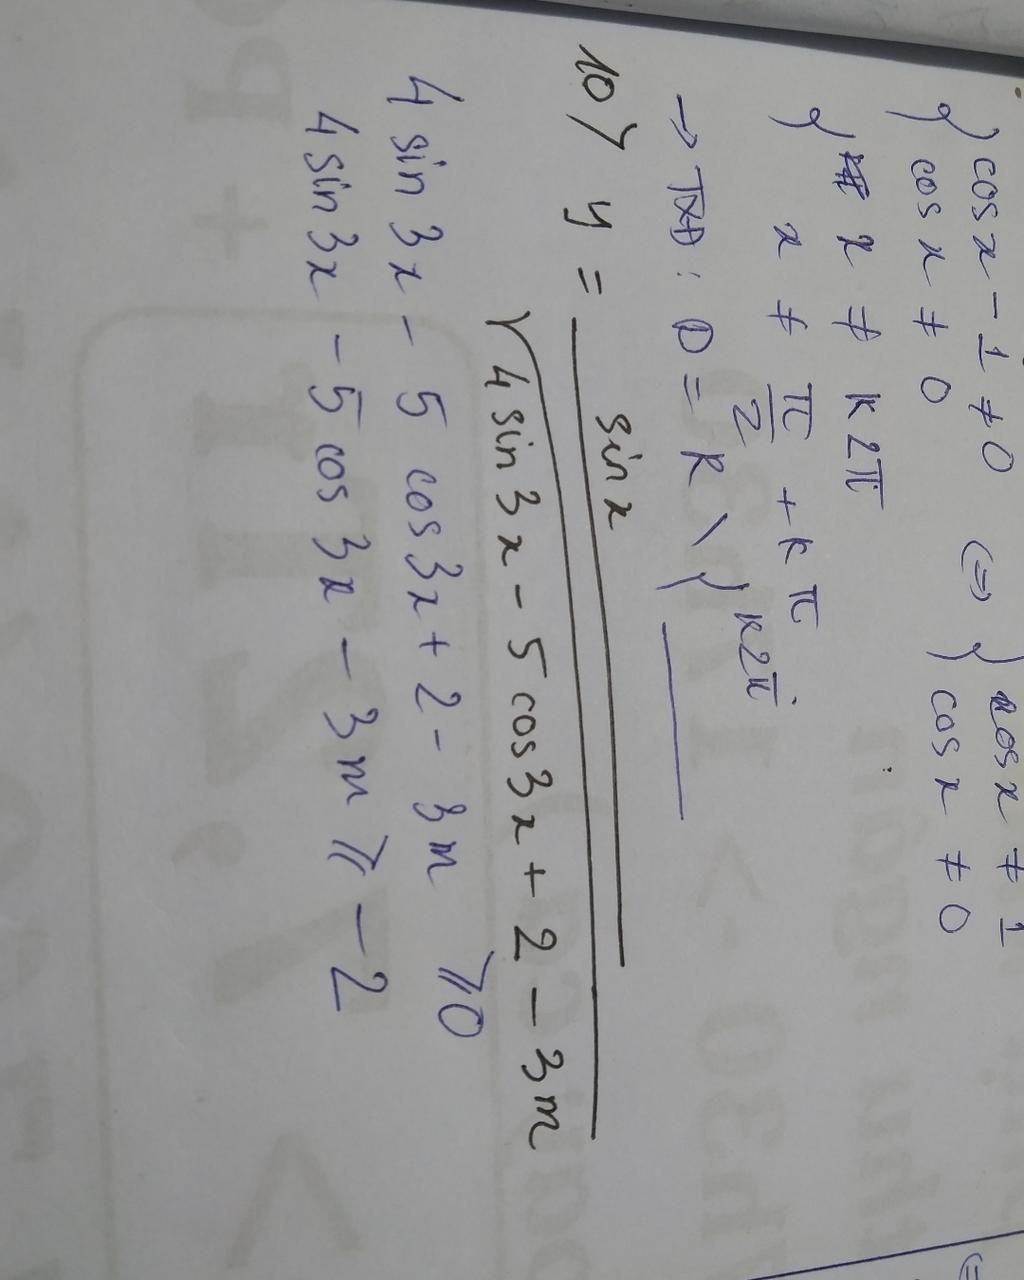 { cos x - 1 ≠ 0 (=) { cos x ≠ 1
{ cos x ≠ 0 { cos x ≠ 0
{ x ≠ k2π
x ≠ π/2 + kπ
→ TXĐ: D = R \ { k2π
10) y = sin x / √(4 sin 3x - 5 cos 3x + 2 - 3m)
4 sin 3x - 5 cos 3x + 2 - 3m ≥ 0
4 sin 3x - 5 cos 3x - 3m ≥ -2